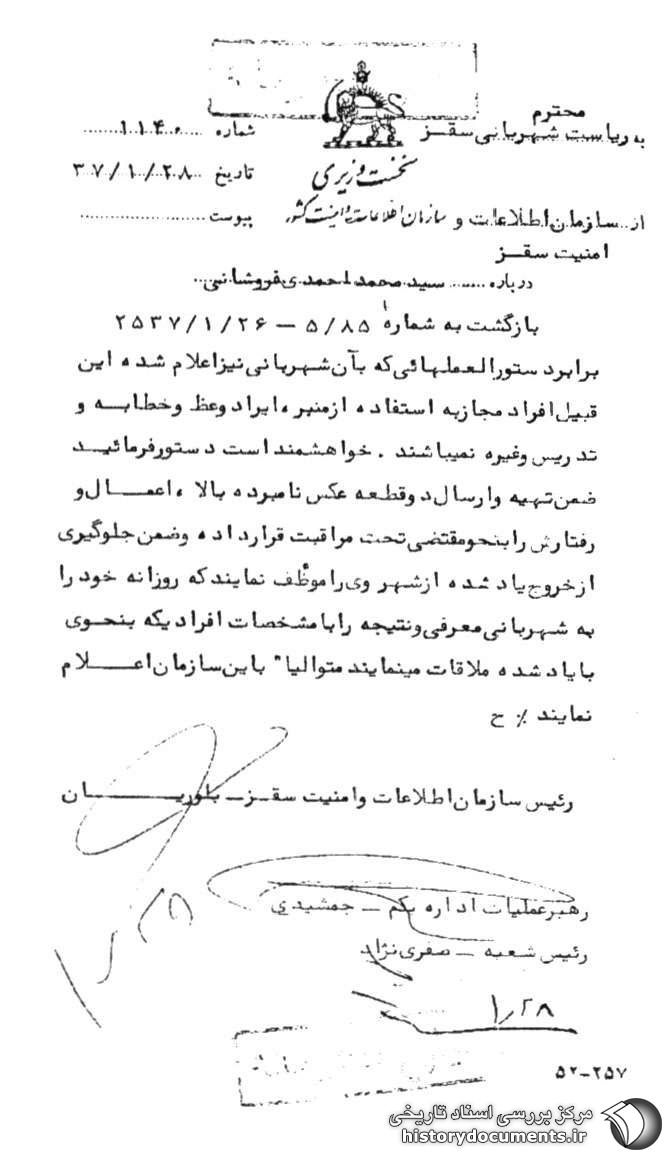 محترم
به ریاست شهربانی سقز
شماره ۱۱۴۰
نخست وزیری
تاریخ ۳۷/۱/۲۸
سازمان اطلاعات و امنیت کشور
از سازمان اطلاعات و
پیوست
امنیت سقز
درباره سید محمد احمدی فروشانی
بازگشت به شماره ۵/۸۵ – ۲۵۳۷/۱/۲۶
برابرد ستورالعملهائی که بآن شهربانی نیز اعلام شده این
قبیل افراد مجاز به استفاده از منبر، ایراد وعظ وخطابه و
تدریس وغیره نمیباشند . خواهشمند است دستور فرمائید
ضمن تهیه وارسال دو قطعه عکس نامبرده بالا ، اعمال و
رفتارش را بنحو مقتضی تحت مراقبت قرار داده وضمن جلوگیری
از خروج یاد شده از شهر وی را موظف نمایند که روزانه خود را
به شهربانی معرفی ونتیجه را با مشخصات افرادیکه بنحوی
با یاد شده ملاقات مینمایند متوالیا" باین سازمان اعلام
نمایند ٪ ح
رئیس سازمان اطلاعات وامنیت سقز – بلوریان
رهبر عملیات اداره یکم – جمشیدی
رئیس شعبه – صفری نژاد
۱٫۲۸
۵۲-۲۵۷
مرکز بررسی اسناد تاریخی
historydocuments.ir